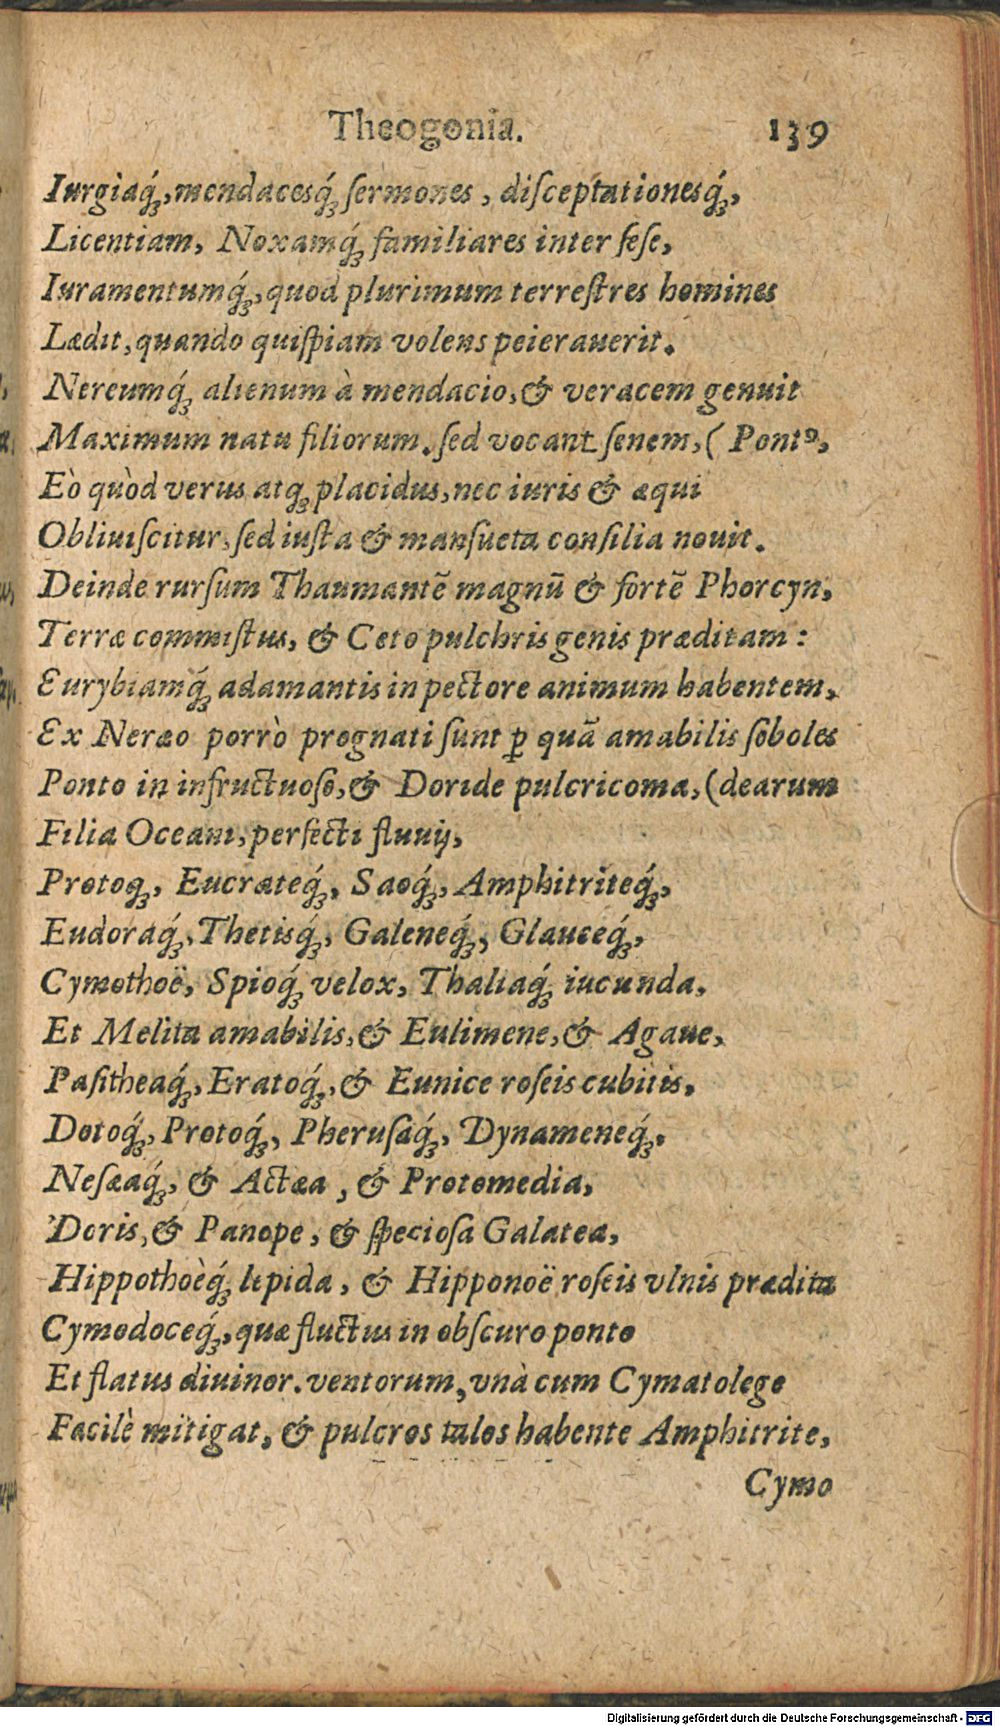 Theogonia. 139
Iurgiaq́ꝫ, mendacesq́ꝫ ſermones, diſceptationesq́ꝫ,
Licentiam, Noxamq́ꝫ familiares inter ſeſe,
Iuramentumq́ꝫ, quod plurimum terreſtres homines
Lædit, quando quiſpiam volens peierauerit.
Nereumq́ꝫ alienum à mendacio, & veracem genuit
Maximum natu filiorum. ſed vocant ſenem, ( Pontꝰ,
Eò quòd verus atqꝫ placidus, nec iuris & æqui
Obliuiſcitur, ſed iuſta & manſueta conſilia nouit.
Deinde rurſum Thaumantē magnū & fortē Phorcyn,
Terræ commiſtus, & Ceto pulchris genis præditam:
Eurybiamq́ꝫ adamantis in pectore animum habentem.
Ex Neræo porrò prognati ſunt ꝑ quā amabilis ſoboles
Ponto in infructuoſo, & Doride pulcricoma, (dearum
Filia Oceani, perfecti fluuij,
Protoqꝫ, Eucrateq́ꝫ, Saoq́ꝫ, Amphitriteq́ꝫ,
Eudoraq́ꝫ, Thetisq́ꝫ, Galeneq́ꝫ, Glauceq́ꝫ,
Cymothoë, Spioq́ꝫ velox, Thaliaq́ꝫ iucunda,
Et Melita amabilis, & Eulimene, & Agaue,
Paſitheaq́ꝫ, Eratoq́ꝫ, & Eunice roſeis cubitis.
Dotoq́ꝫ, Protoq́ꝫ, Pheruſaq́ꝫ, Dynameneq́ꝫ,
Neſæaq́ꝫ, & Actæa, & Protomedia,
Doris, & Panope, & ſpecioſa Galatea,
Hippothoèq́ꝫ lepida, & Hipponoë roſeis vlnis prædita
Cymodoceq́ꝫ, quæ fluctus in obſcuro ponto
Et flatus diuinor. ventorum, vnà cum Cymatolege
Facilè mitigat, & pulcros talos habente Amphitrite,
Cymo
Digitalisierung gefördert durch die Deutsche Forschungsgemeinschaft - DFG